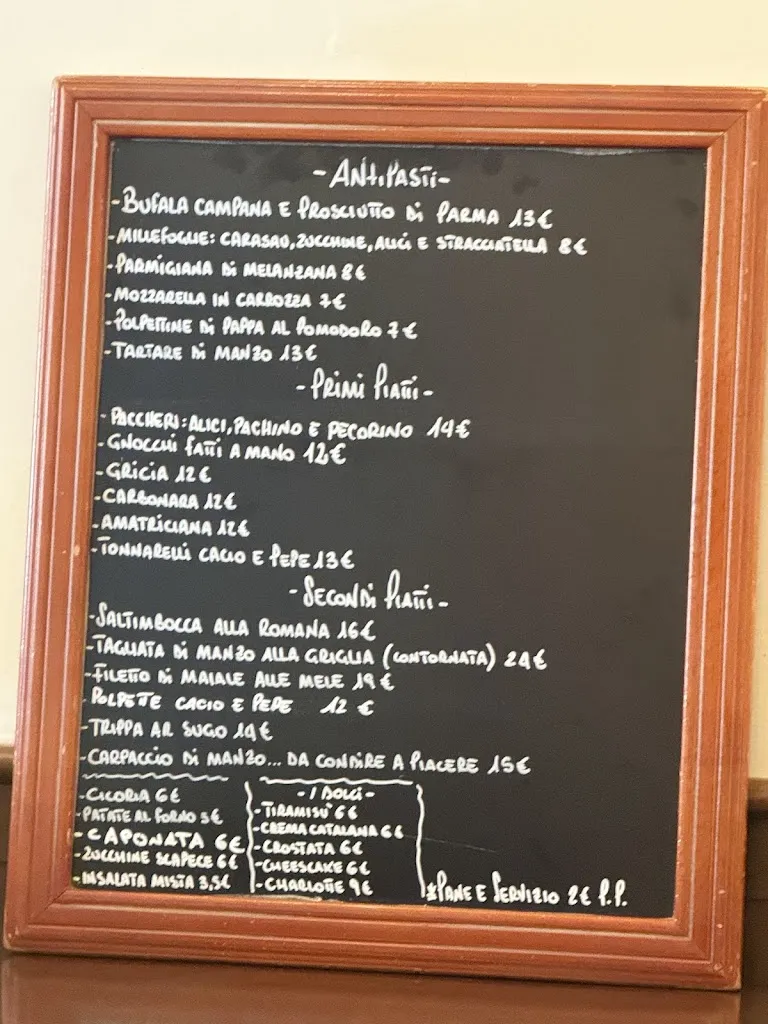 - ANTIPASTI -
- BUFALA CAMPANA E PROSCIUTTO DI PARMA 13€
- MILLEFOGLIE: CARASAU, ZUCCHINE, ALICI E STRACCIATELLA 8€
- PARMIGIANA DI MELANZANA 8€
- MOZZARELLA IN CARROZZA 7€
- POLPETTINE DI PAPPA AL POMODORO 7€
- TARTARE DI MANZO 13€
- PRIMI PIATTI -
- PACCHERI: ALICI, PACHINO E PECORINO 14€
- GNOCCHI FATTI A MANO 12€
- GRICIA 12€
- CARBONARA 12€
- AMATRICIANA 12€
- TONNARELLI CACIO E PEPE 13€
- SECONDI PIATTI -
- SALTIMBOCCA ALLA ROMANA 16€
- TAGLIATA DI MANZO ALLA GRIGLIA (CONTORNATA) 24€
- FILETTO DI MAIALE ALLE MELE 19€
- POLPETTE CACIO E PEPE 12 €
- TRIPPA AR SUGO 14€
- CARPACCIO DI MANZO... DA CONDIRE A PIACERE 15€
- CICORIA 6€
- PATATE AL FORNO 5€
- CAPONATA 6€
- ZUCCHINE SCAPECE 6€
- INSALATA MISTA 3,5€
- I DOLCI -
- TIRAMISÙ 6€
- CREMA CATALANA 6€
- CROSTATA 6€
- CHEESCAKE 6€
- CHARLOTTE 9€
*PANE E SERVIZIO 2€ P.P.